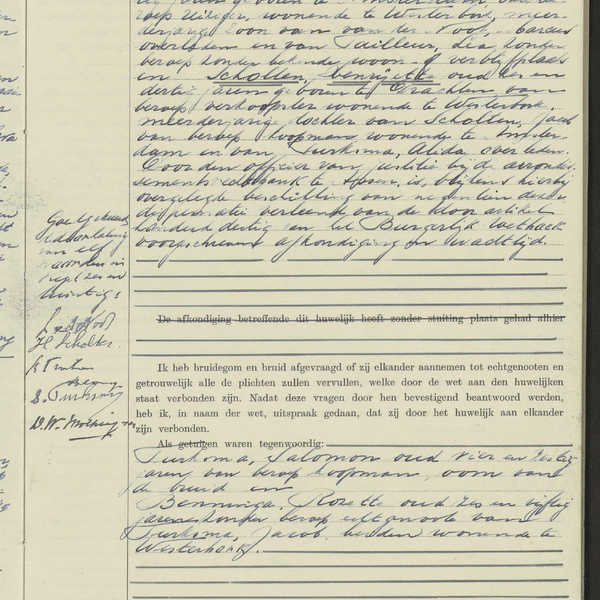 roep Reiziger, wonende te Westerbork, meer-
derjarige zoon van van der Noot, Barend
overleden en van Tailleur, Lea zonder
beroep zonder bekende woon- of verblijfplaats
en Scholten, Henriette oud zes en
dertig jaren geboren te Drachten van
beroep verkoopster wonende te Westerbork,
meerderjarige dochter van Scholten, Jacob
van beroep koopman wonende te Amster-
dam en van Turksma, Alida overleden.
Door den officier van justitie bij de arrondis-
sements rechtbank te Assen, is, blijkens hierbij
overgelegde beschikking van negentien dezer
dispensatie verleend van de door artikel
honderd dertig en het Burgerlijk Wetboek
voorgeschreven afkondiging en wachttijd.
Goedgekeurd
de doorhaling
van elf
woorden in
regel zes en
twintig:
H Scholten.
S. Turksma
De afkondiging betreffende dit huwelijk heeft zonder stuiting plaats gehad alhier
Ik heb bruidegom en bruid afgevraagd of zij elkander aannemen tot echtgenooten en
getrouwelijk alle de plichten zullen vervullen, welke door de wet aan den huwelijken
staat verbonden zijn. Nadat deze vragen door hen bevestigend beantwoord werden,
heb ik, in naam der wet, uitspraak gedaan, dat zij door het huwelijk aan elkander
zijn verbonden.
Als getuigen waren tegenwoordig:
Turksma, Salomon oud vier en zestig
jaren, van beroep koopman, oom van
de bruid en
Benninga, Rozette oud zes en vijftig
jaren zonder beroep echtgenoote van
Turksma, Jacob, beiden wonende te
Westerbork.